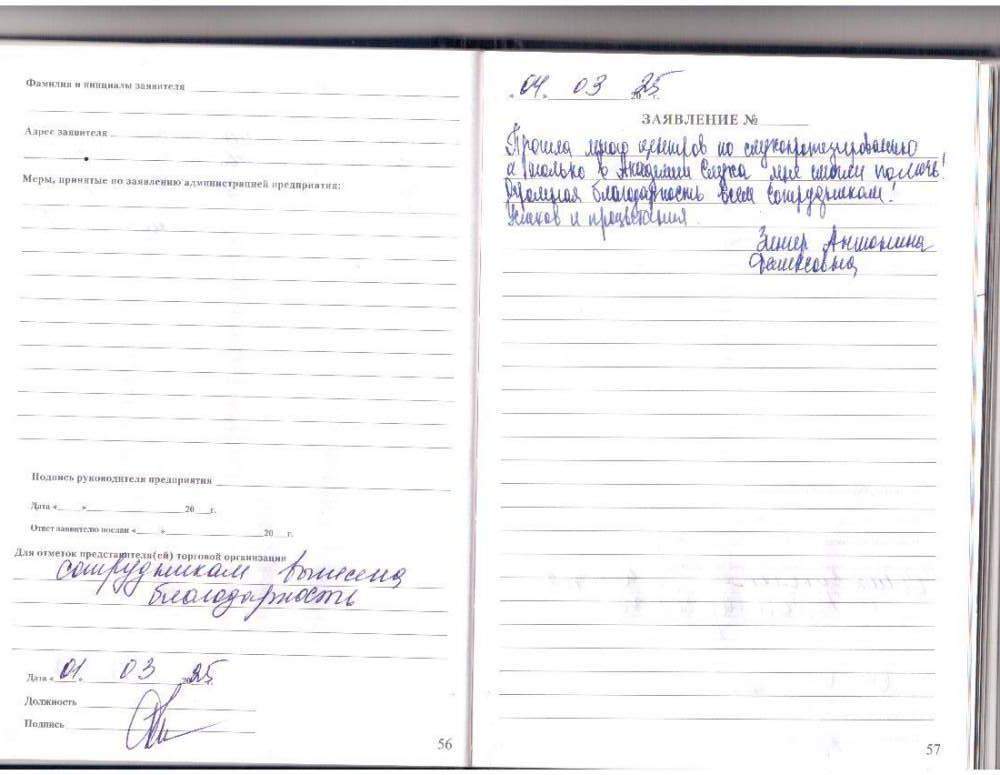 Фамилия и инициалы заявителя
Адрес заявителя
Меры, принятые по заявлению администрацией предприятия:
Подпись руководителя предприятия
Дата «__»__________20__г.
Ответ заявителю послан «__»__________20__г.
Для отметок представителя(ей) торговой организации
сотрудникам вынесена
благодарность
Дата «01» 03 2025г.
Должность
Подпись
56
«04» 03 2025г.
ЗАЯВЛЕНИЕ №
Прошла много центров по слухопротезированию
и только в Академии Слуха мне смогли помочь!
Огромная благодарность всем сотрудникам!
Успехов и процветания
Антонина
57